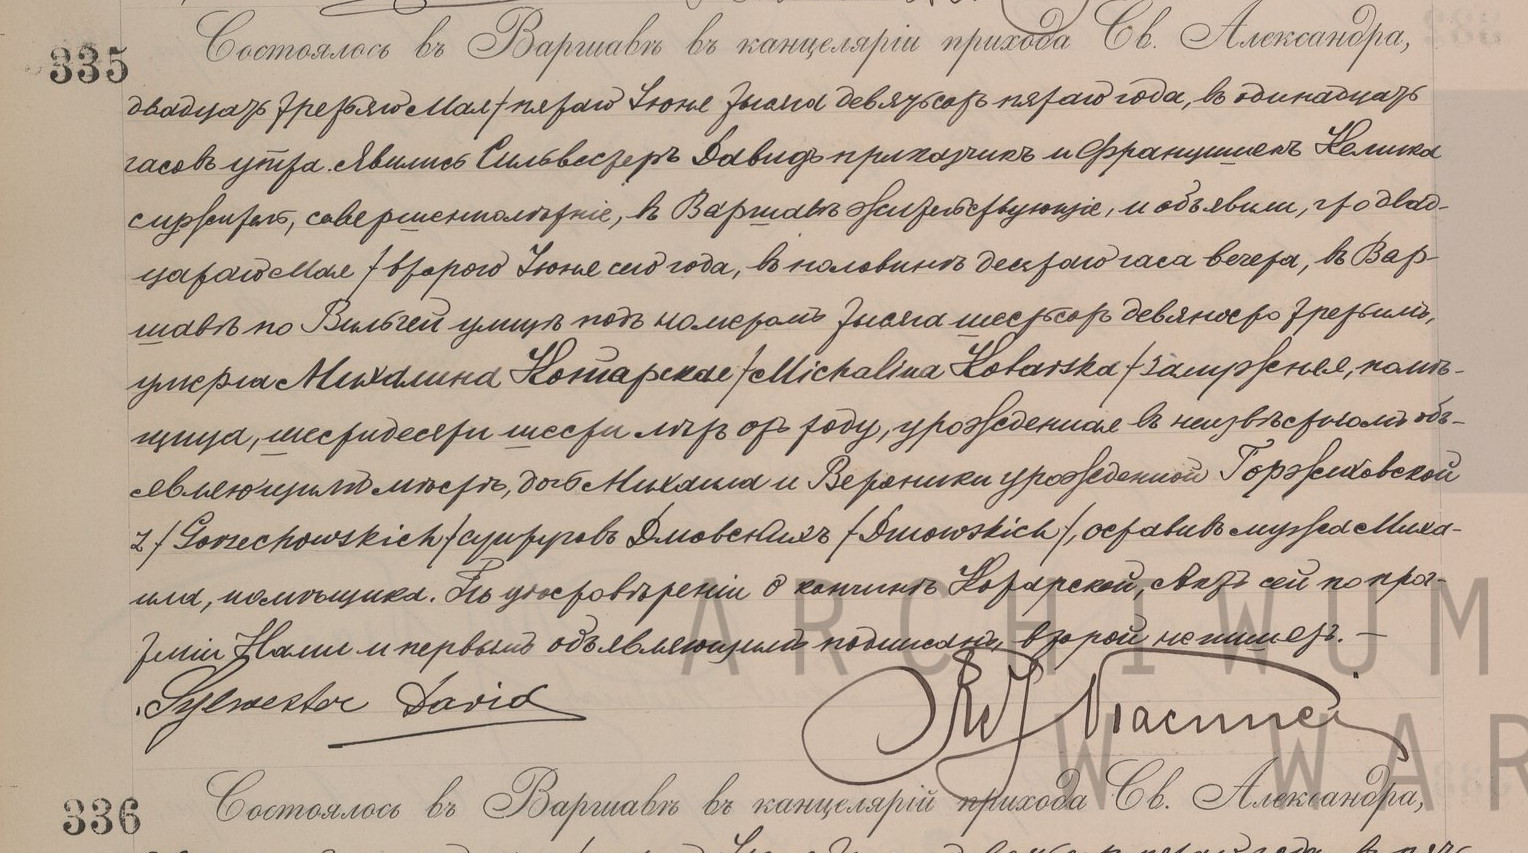 335 Состоялось въ Варшавѣ въ канцеляріи прихода Св. Александра,
двадцать третьяго Мая / пятаго Іюня тысяча девятьсотъ пятаго года, въ одинадцать
часовъ утра. Явились Сильвестеръ Давидъ прикащикъ и Францишекъ
совершеннолѣтніе, въ Варшавѣ жительствующіе, и объявили, что двад-
цатаго Мая / втораго Іюня сего года, въ половинѣ десятаго часа вечера, въ Вар-
шавѣ по Вильчей улицѣ подъ номеромъ тысяча шестьсотъ девяносто третьимъ,
умерла Михалина Котарская / Michalina Kotarska / замужняя, помѣ-
щица, шестидесяти шести лѣтъ отъ роду, урожденная въ неизвѣстномъ объ-
являющимъ мѣстѣ, дочь Михаила и Вероники урожденной Горжеховской
z / Gorzechowskich / супруговъ Дмовскихъ / Dmowskich /, оставивъ мужа Миха-
ила, помѣщика. По удостовѣреніи о кончинѣ Котарской, актъ сей по проч-
теніи Нами и первымъ объявляющимъ подписанъ, второй не пишетъ. —
Sylwester David
336 Состоялось въ Варшавѣ въ канцелярій прихода Св. Александра,
ARCHIWUM
W WAR